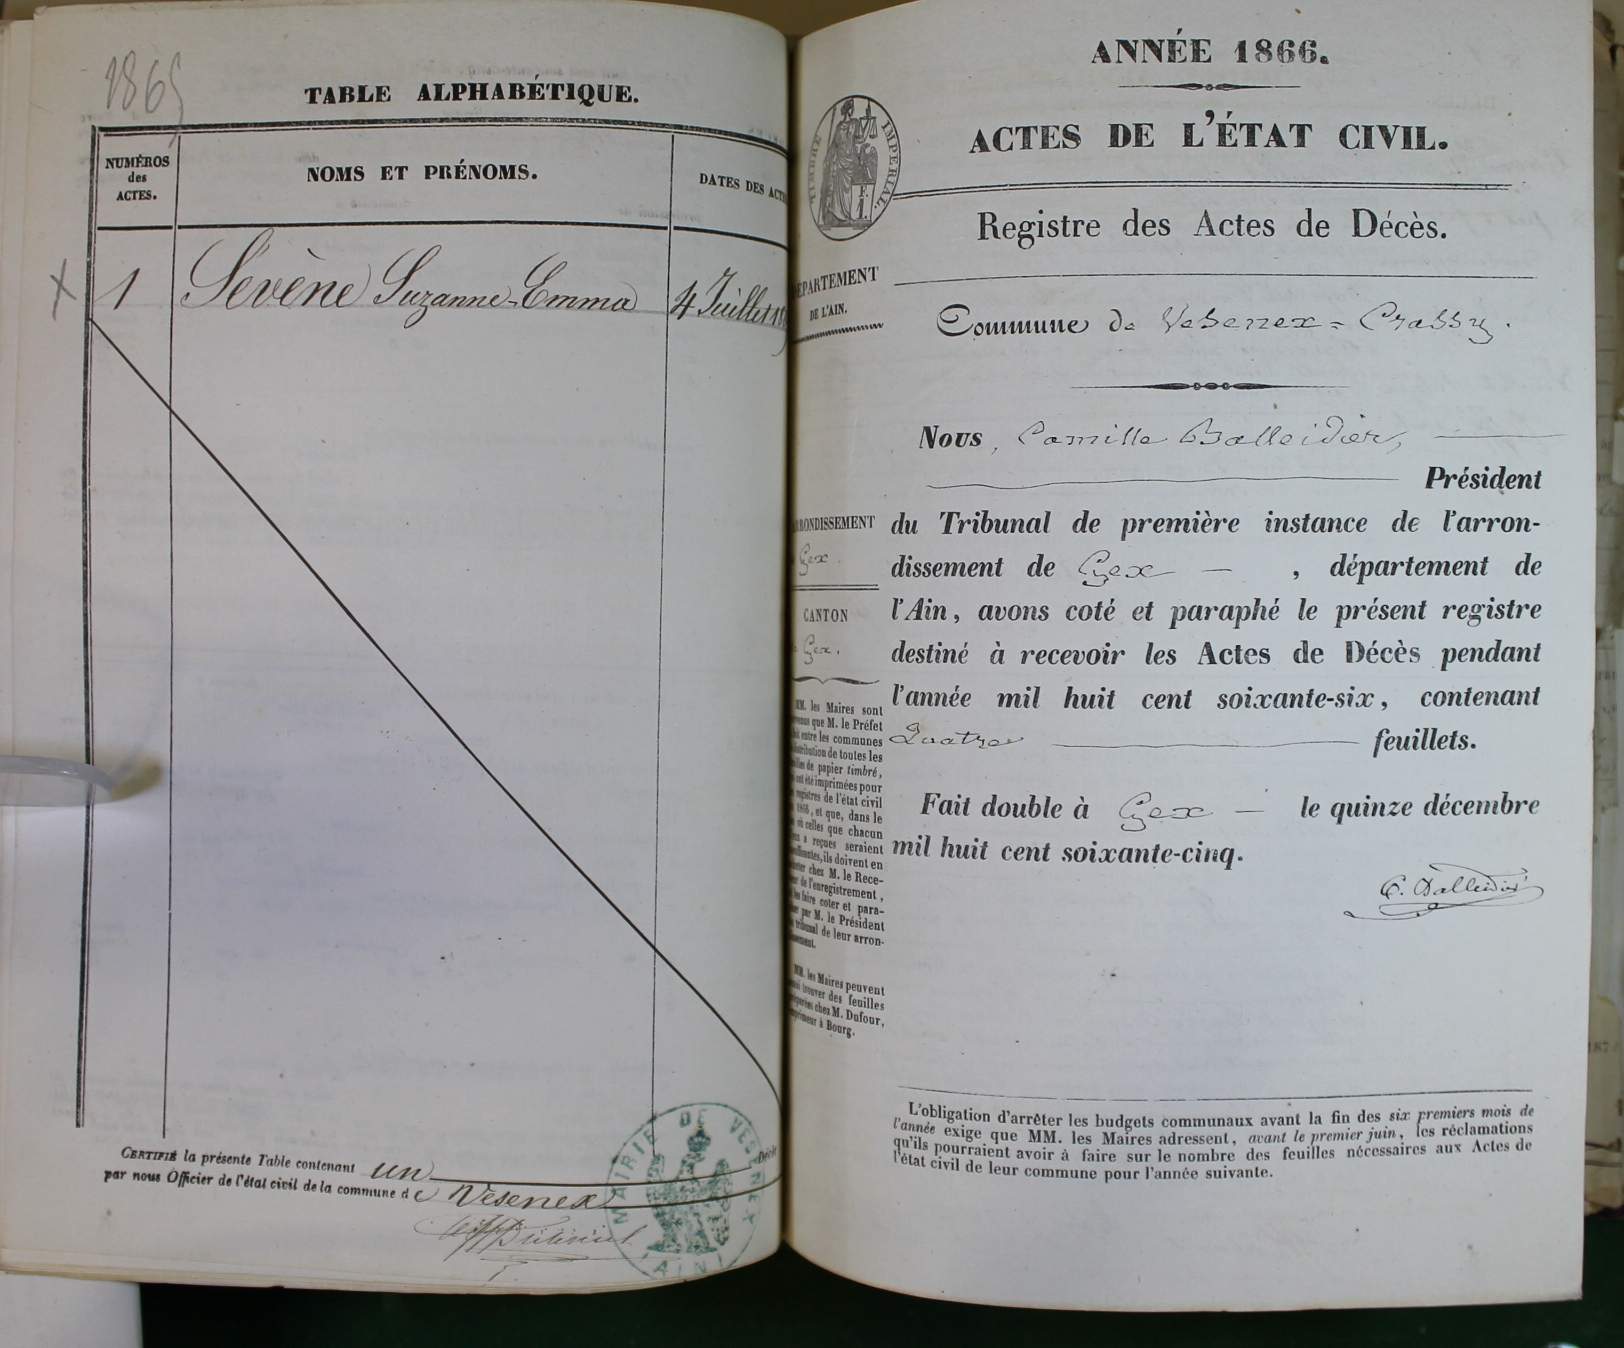 1865
TABLE ALPHABÉTIQUE.
NUMÉROS
des
ACTES.
NOMS ET PRÉNOMS.
DATES DES ACTES
X 1 Sévène Suzanne-Emma 4 Juillet
CERTIFIÉ la présente Table contenant un Décès
par nous Officier de l'état civil de la commune de Vesenex
MAIRIE DE VESENEX
(AIN)
ANNÉE 1866.
ACTES DE L'ÉTAT CIVIL.
TIMBRE IMPERIAL.
F.
1.
Registre des Actes de Décès.
DÉPARTEMENT
DE L'AIN.
Commune de Vesenex-Crassy.
Nous, Camille Balleidier,
Président
ARRONDISSEMENT
Gex.
CANTON
Gex.
du Tribunal de première instance de l'arron-
dissement de Gex, département de
l'Ain, avons coté et paraphé le présent registre
destiné à recevoir les Actes de Décès pendant
l'année mil huit cent soixante-six, contenant
Quatre feuillets.
Fait double à Gex le quinze décembre
mil huit cent soixante-cinq.
C. Balleidier
MM. les Maires sont
prévenus que M. le Préfet
fait entre les communes
distribution de toutes les
feuilles de papier timbré,
qui ont été imprimées pour
les registres de l'état civil
de 1866, et que, dans le
cas où celles que chacun
d'eux a reçues seraient
insuffisantes, ils doivent en
acheter chez M. le Rece-
veur de l'enregistrement,
et les faire coter et para-
pher par M. le Président
du tribunal de leur arron-
dissement.
MM. les Maires peuvent
aussi trouver des feuilles
préparées chez M. Dufour,
imprimeur à Bourg.
L'obligation d'arrêter les budgets communaux avant la fin des six premiers mois de
l'année exige que MM. les Maires adressent, avant le premier juin, les réclamations
qu'ils pourraient avoir à faire sur le nombre des feuilles nécessaires aux Actes de
l'état civil de leur commune pour l'année suivante.